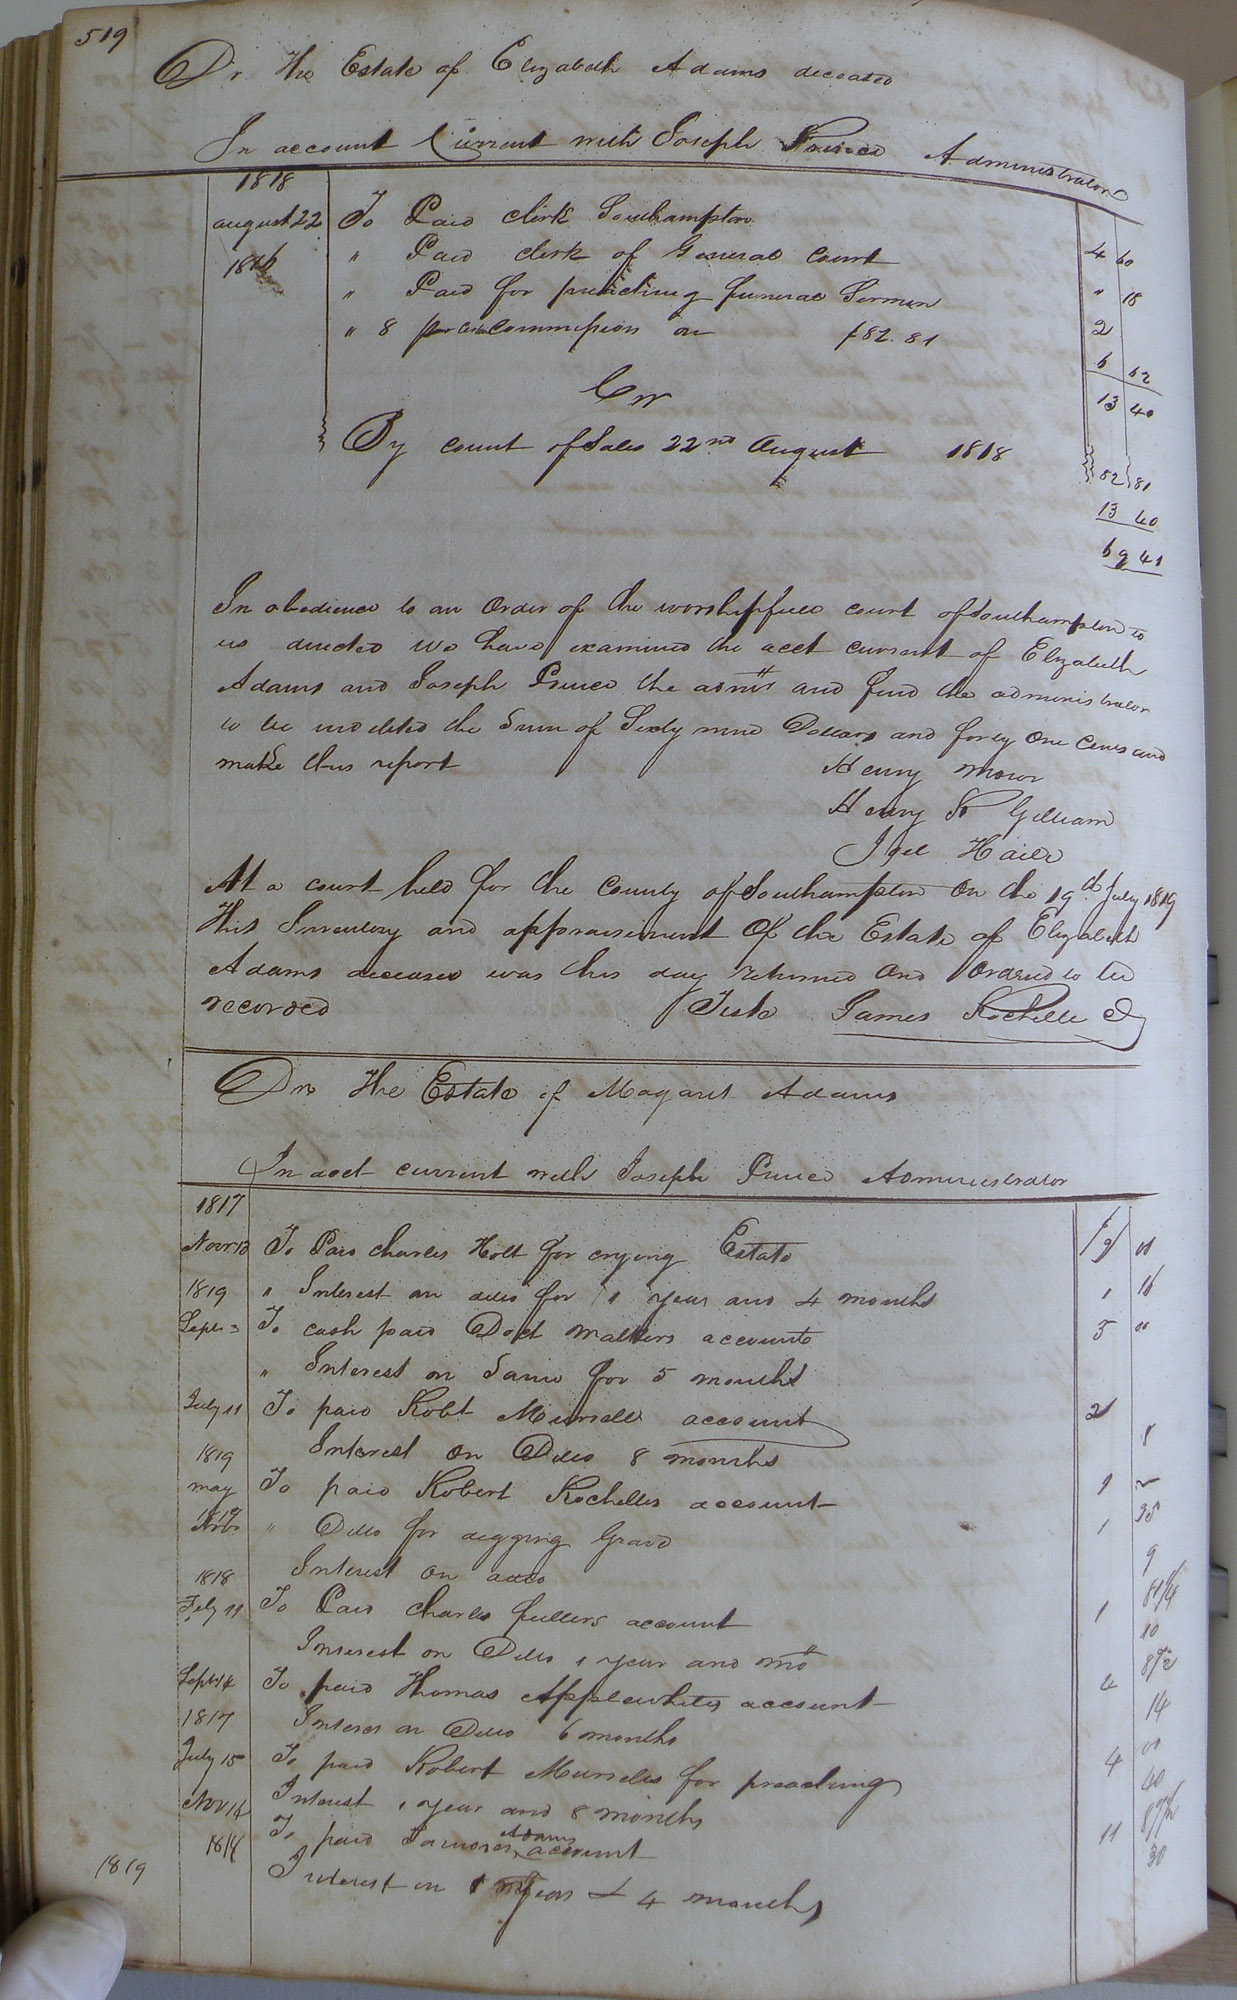 519
Dr The Estate of Elizabeth Adams deceased
In account Current with Joseph Prince Administrator
1818
august 22 To Paid clerk Southampton 4 60
1816 " Paid clerk of General Court " 18
" Paid for preaching funeral Sermon 2
" 8 per Cent commission on $82.81 6 62
13 40
Cr
By count of Sales 22nd August 1818 82 81
13 40
69 41
In obedience to an Order of the worshipfull court of Southampton to
us directed we have examined the acct current of Elizabeth
Adams and Joseph Prince the admr and find the administrator
to be indebted the Sum of Sixty nine Dollars and forty One Cents and
make this report
Henry
Henry Gilliam
Joel Haile
At a court held for the County of Southampton On the 19th July 1819
This Inventory and appraisement Of the Estate of Elizabeth
Adams deceased was this day returned and Ordered to be
recorded Teste James Rochelle C
Dr The Estate of Magaret Adams
In acct current with Joseph Prince Administrator
1817
Novr 13 To Paid Charles Holt for crying Estate
1819 " Interest on ditto for 1 year and 4 months 1 16
Sept 3 To cash paid Doct accounts 5 "
" Interest on Same for 5 months
July 11 To paid Robt Mursells account 21
Interest on Ditto 8 months 8
1819
may To paid Robert Rochelles account 9
" Ditto for digging Grave 1
Interest on ditto 9
1818
Feby 11 To Paid Charles fullers account 1
Interest on Ditto 1 year and mo
Sept 14 To paid Thomas Applewhites account 4
1817 Interes on Ditto 6 months 14
July 15 To paid Robert Mursells for preaching 4
Interest 1 year and 8 months 40
Nov 14 To paid Adams account 11
1818
1819 Interest on 1 year & 4 months